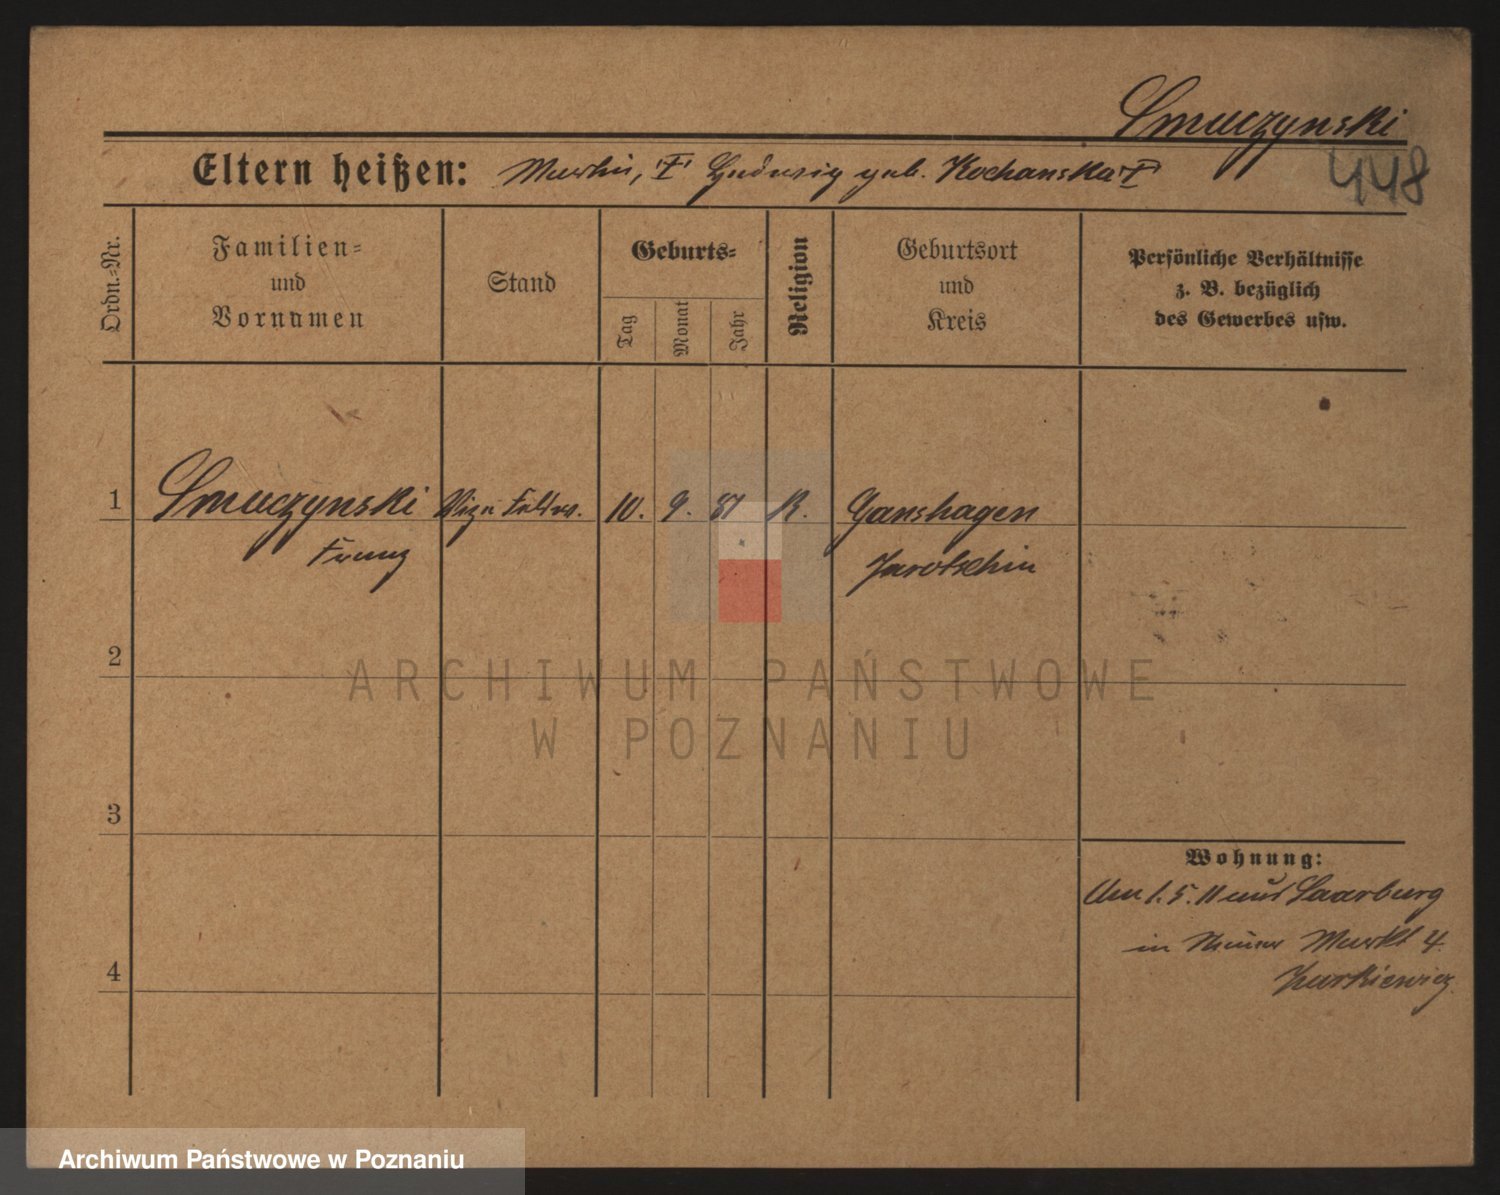 Smuczynski
448
Eltern heißen: Martin, geb. Kochanska
Ordn.=Nr.
Familien=
und
Vornamen
Stand
Geburts=
Tag
Monat
Jahr
Religion
Geburtsort
und
Kreis
Persönliche Verhältnisse
z. B. bezüglich
des Gewerbes usw.
1
Smuczynski
Franz
Vize Feldw.
10.
9.
81
K.
Ganshagen
Jarotschin
2
ARCHIWUM PAŃSTWOWE
W POZNANIU
3
4
Wohnung:
Am 1. 5. 11 aus Saarburg
in Markt 4.
Archiwum Państwowe w Poznaniu